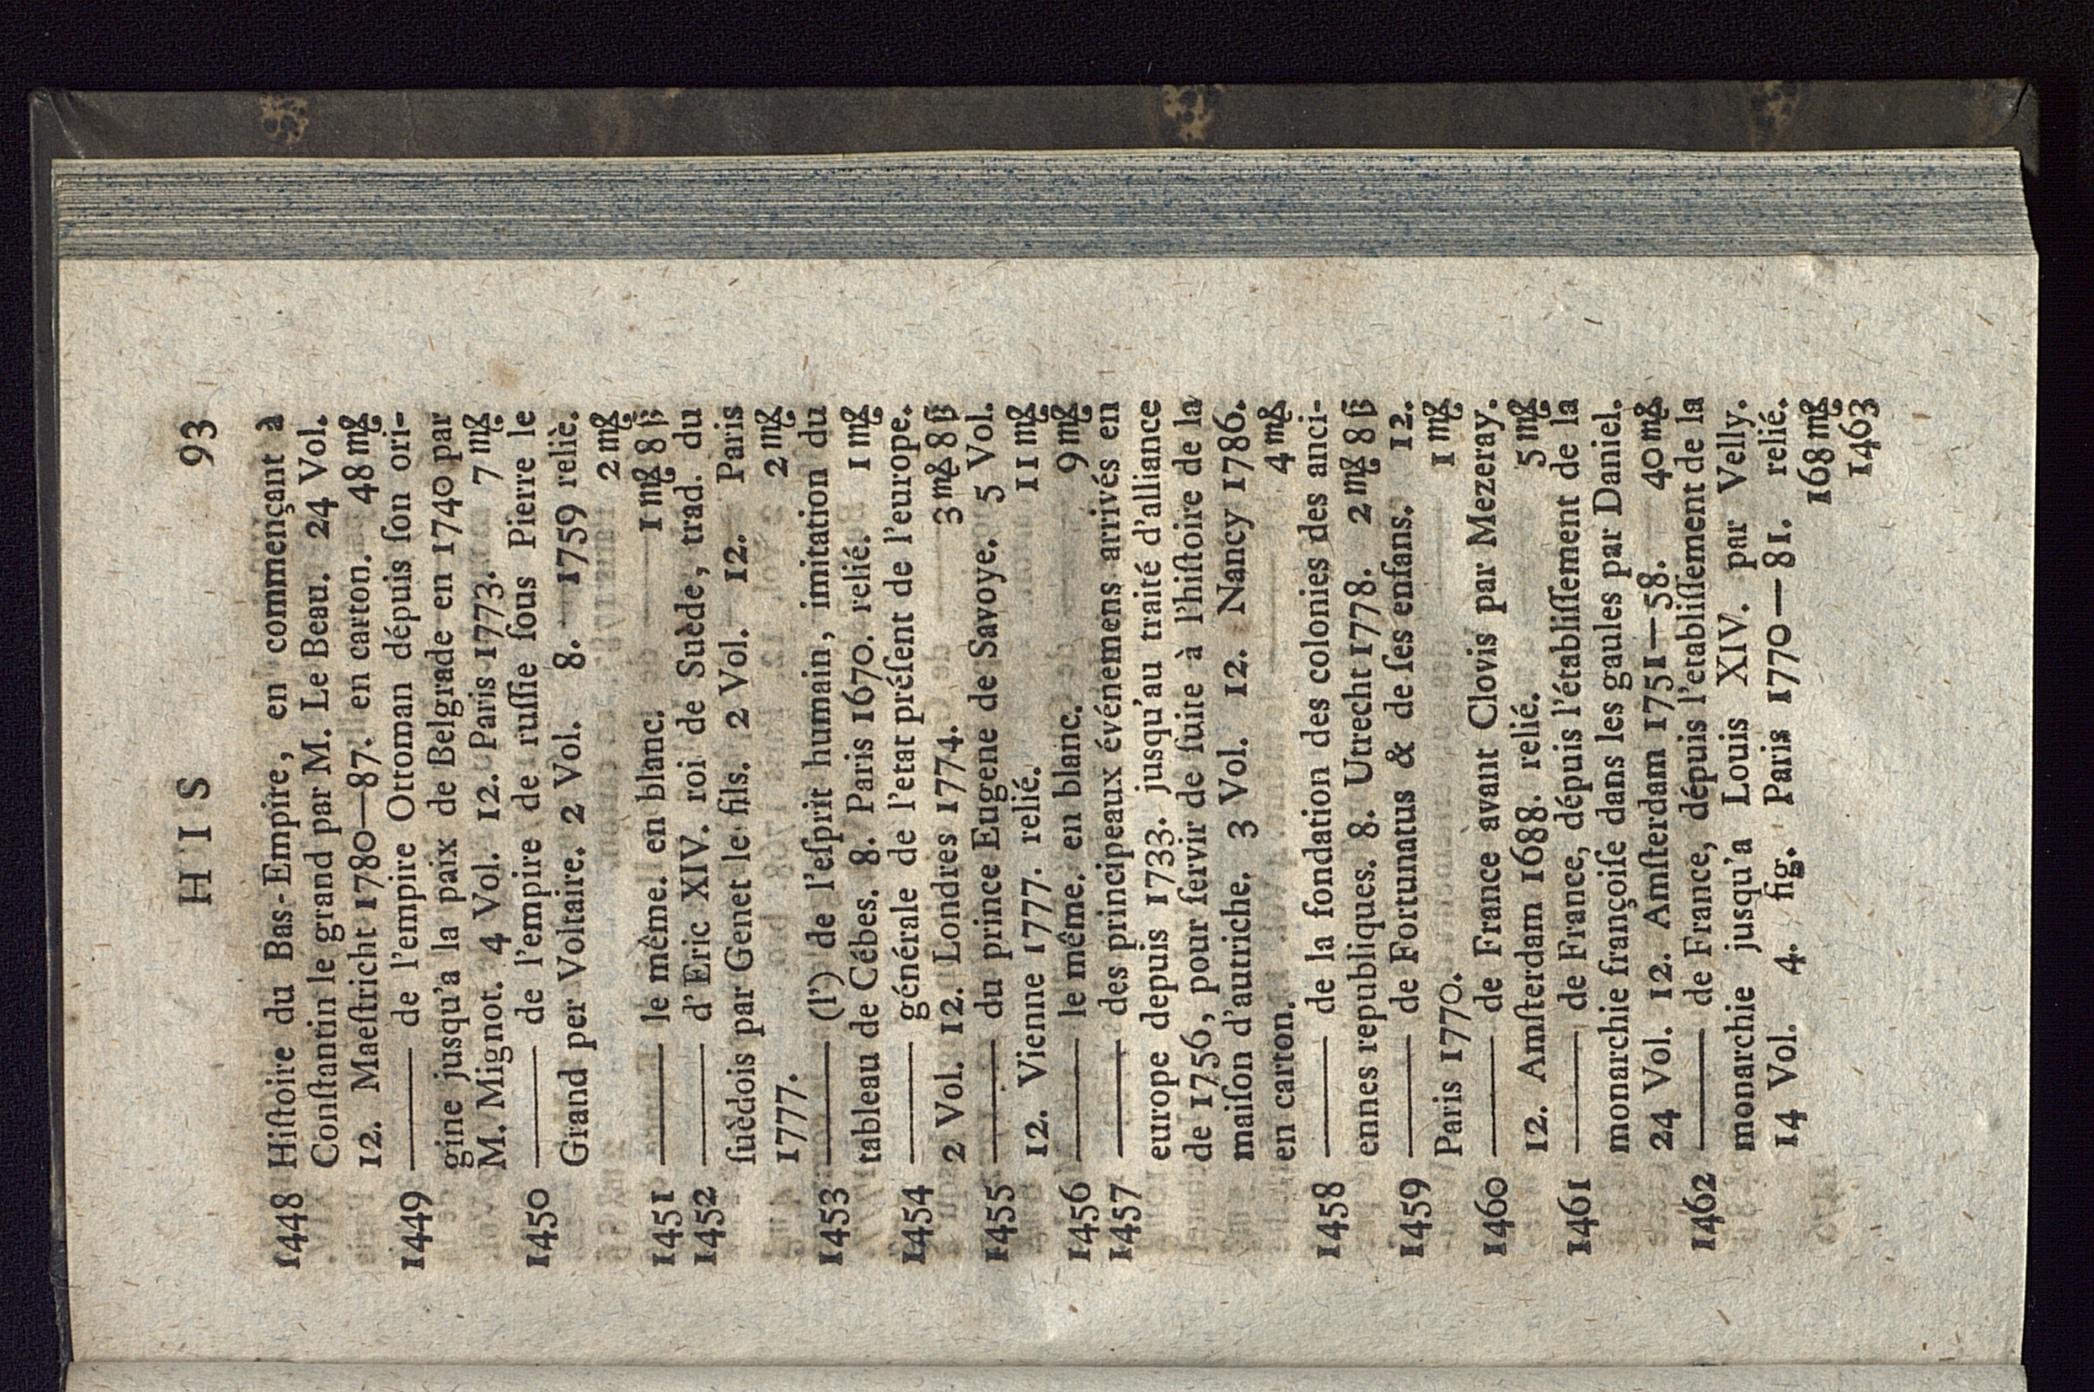 HIS 93
1448 Hiſtoire du Bas-Empire, en commençant à
Conſtantin le grand par M. Le Beau. 24 Vol.
12. Maeſtricht 1780—87. en carton. 48 m&
1449 —— de l'empire Ottoman dépuis ſon ori-
gine jusqu'a la paix de Belgrade en 1740 par
M. Mignot. 4 Vol. 12. Paris 1773. 7 m&
1450 —— de l'empire de ruſſie ſous Pierre le
Grand per Voltaire. 2 Vol. 8. 1759 reliè.
2 m&
1451 —— le même. en blanc. 1 m& 8 β
1452 —— d'Eric XIV. roi de Suède, trad. du
ſuèdois par Genet le fils. 2 Vol. 12. Paris
1777. 2 m&
1453 —— (l') de l'eſprit humain, imitation du
tableau de Cébes. 8. Paris 1670. relié. 1 m&
1454 —— générale de l'etat préſent de l'europe.
2 Vol. 12. Londres 1774. 3 m& 8 β
1455 —— du prince Eugene de Savoye. 5 Vol.
12. Vienne 1777. relié. 11 m&
1456 —— le même. en blanc. 9 m&
1457 —— des principeaux événemens arrivés en
europe depuis 1733. jusqu'au traité d'alliance
de 1756, pour ſervir de ſuite à l'hiſtoire de la
maiſon d'autriche. 3 Vol. 12. Nancy 1786.
en carton. 4 m&
1458 —— de la fondation des colonies des anci-
ennes republiques. 8. Utrecht 1778. 2 m& 8 β
1459 —— de Fortunatus & de ſes enfans. 12.
Paris 1770. 1 m&
1460 —— de France avant Clovis par Mezeray.
12. Amſterdam 1688. relié. 5 m&
1461 —— de France, dépuis l'établiſſement de la
monarchie françoiſe dans les gaules par Daniel.
24 Vol. 12. Amſterdam 1751—58. 40 m&
1462 —— de France, dépuis l'etabliſſement de la
monarchie jusqu'a Louis XIV. par Velly.
14 Vol. 4. fig. Paris 1770—81. relié.
168 m&
1463